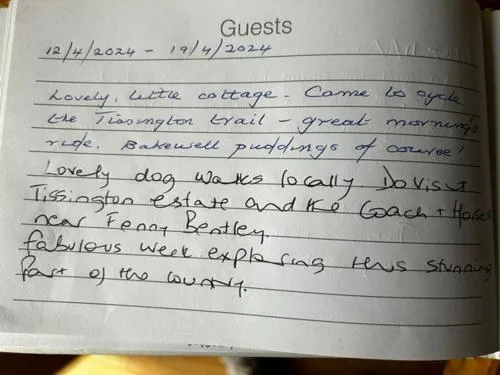 Guests
12/4/2024 - 19/4/2024
Lovely, little cottage. Came to cycle
the Tissington trail - great morning's
ride. Bakewell puddings of course!
Lovely dog walks locally. Do visit
Tissington estate and the Coach + Horses
near Fenny Bentley.
fabulous week exploring this stunning
Part of the country.